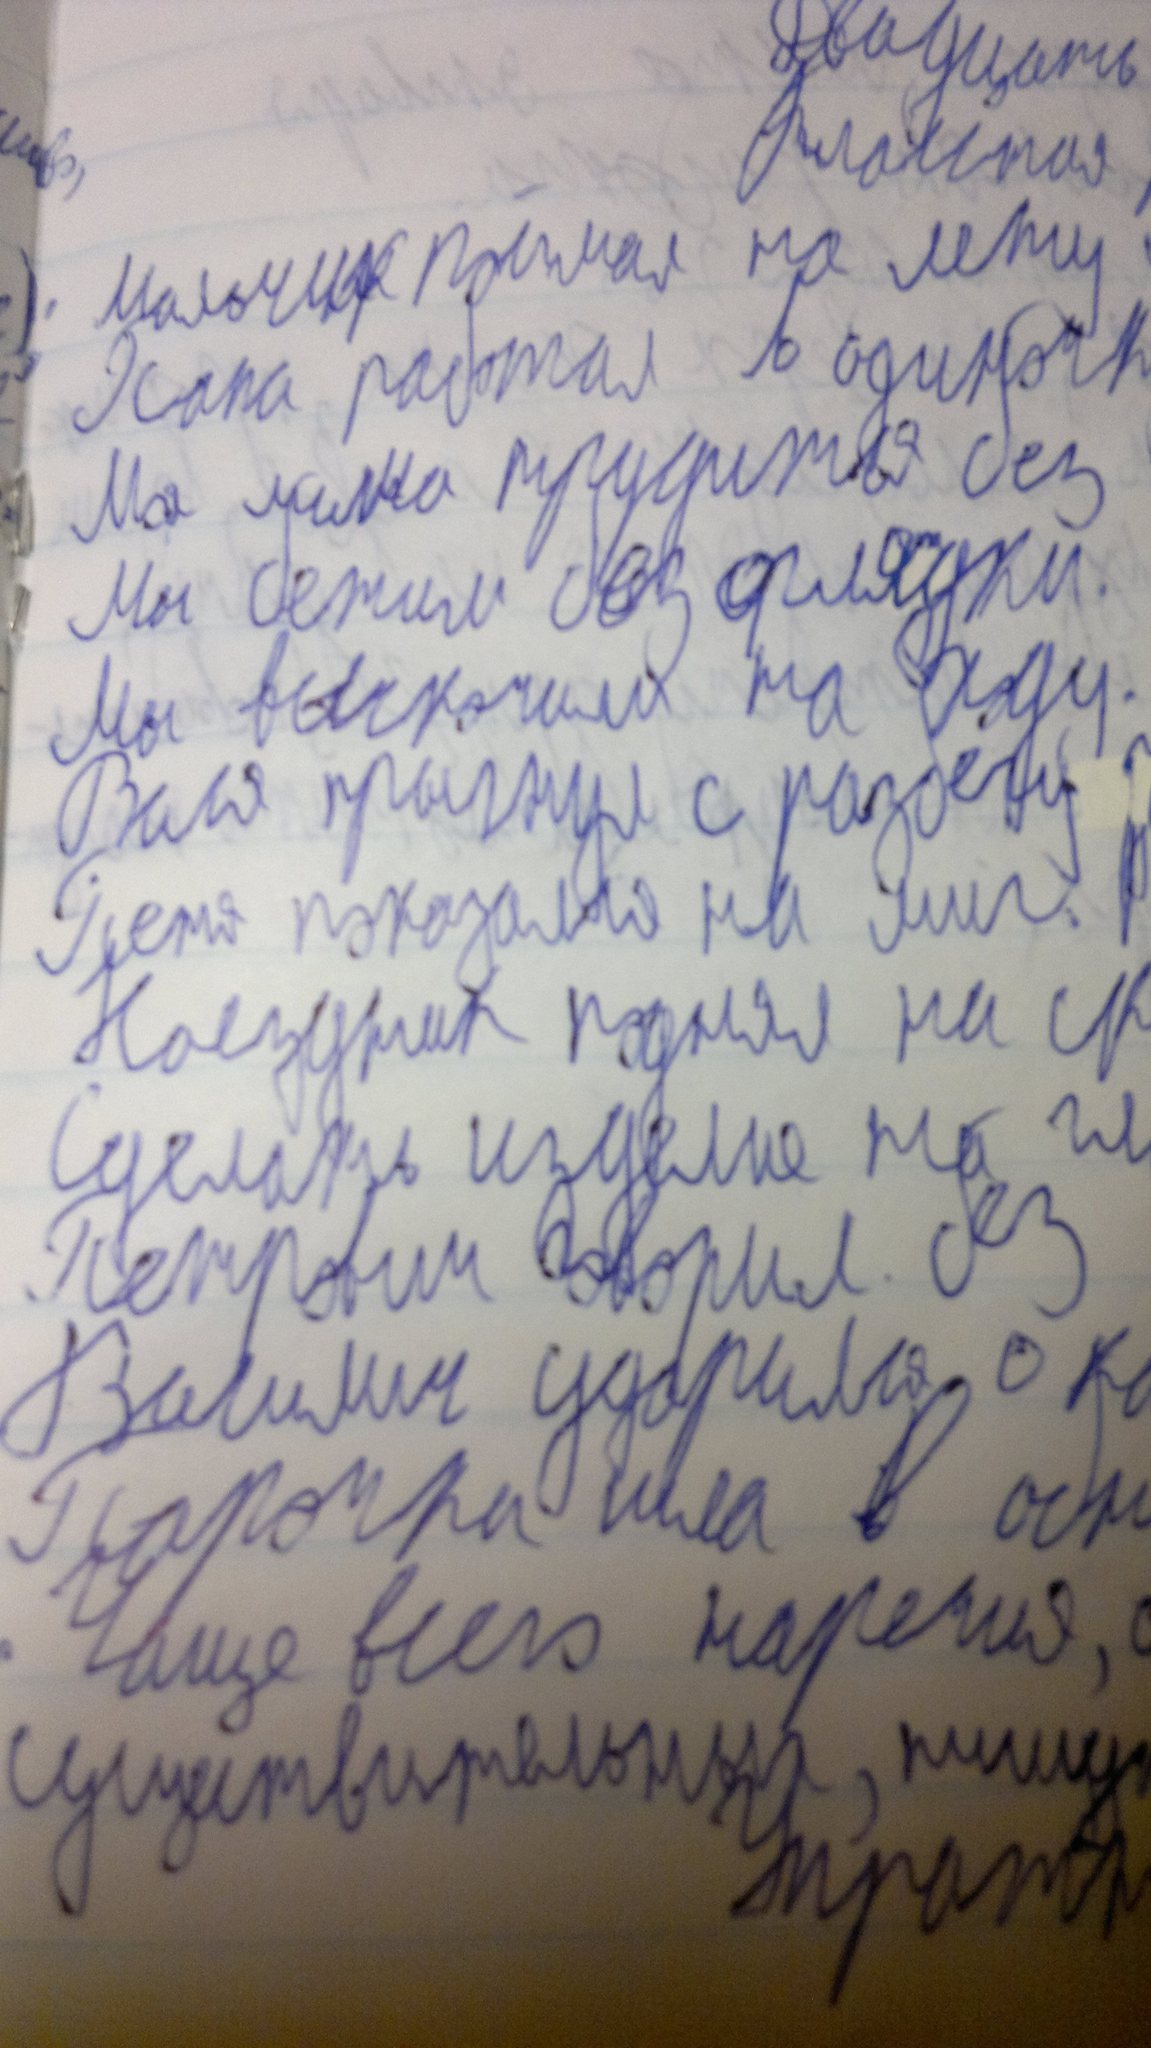 Двадцать
Классная
Мальчик поймал на лету
Папа работал в одиночк
Моя мама трудится без
Мы бежим без оглядки.
Мы выскочили на ходу.
Вася прыгнул с разбегу
Петя показался на миг.
Наездник поднял на ск
Сделать изделие на гл
Петрович говорил без
Василич ударился о ка
Парочка шла в обн
Чаще всего наречия, о
существительных, пишут